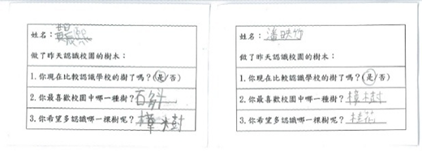 姓名：
做了昨天認識校園的樹木：
1.你現在比較認識學校的樹了嗎？(是/否)
2.你最喜歡校園中哪一種樹？石斛
3.你希望多認識哪一棵樹呢？樟樹
姓名：潘
做了昨天認識校園的樹木：
1.你現在比較認識學校的樹了嗎？(是/否)
2.你最喜歡校園中哪一種樹？樟樹
3.你希望多認識哪一棵樹呢？